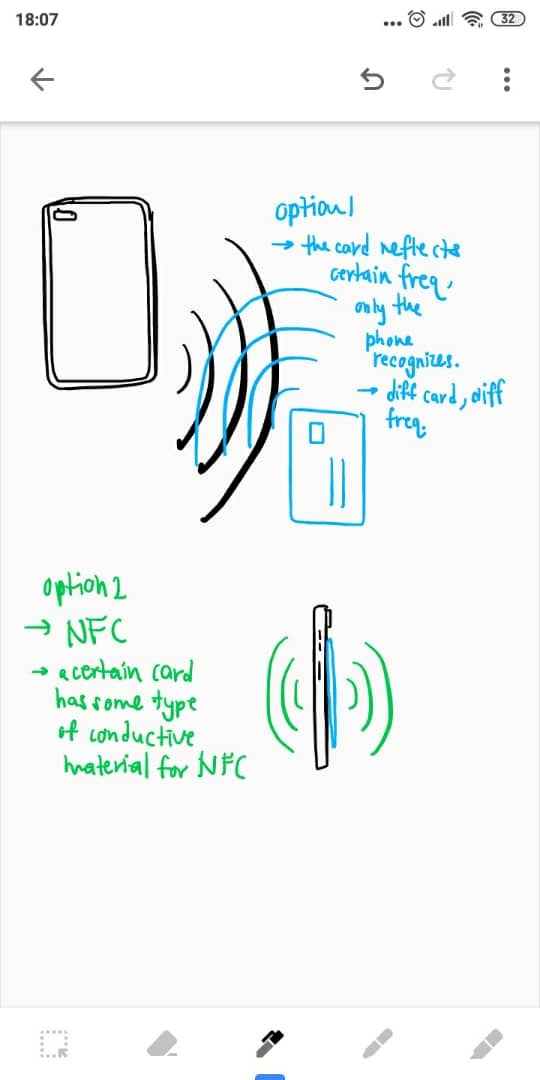 18:07
32
option 1
→ the card reflects
certain freq,
only the
phone
recognizes.
→ diff card, diff
freq.
option 2
→ NFC
→ a certain card
has some type
of conductive
material for NFC